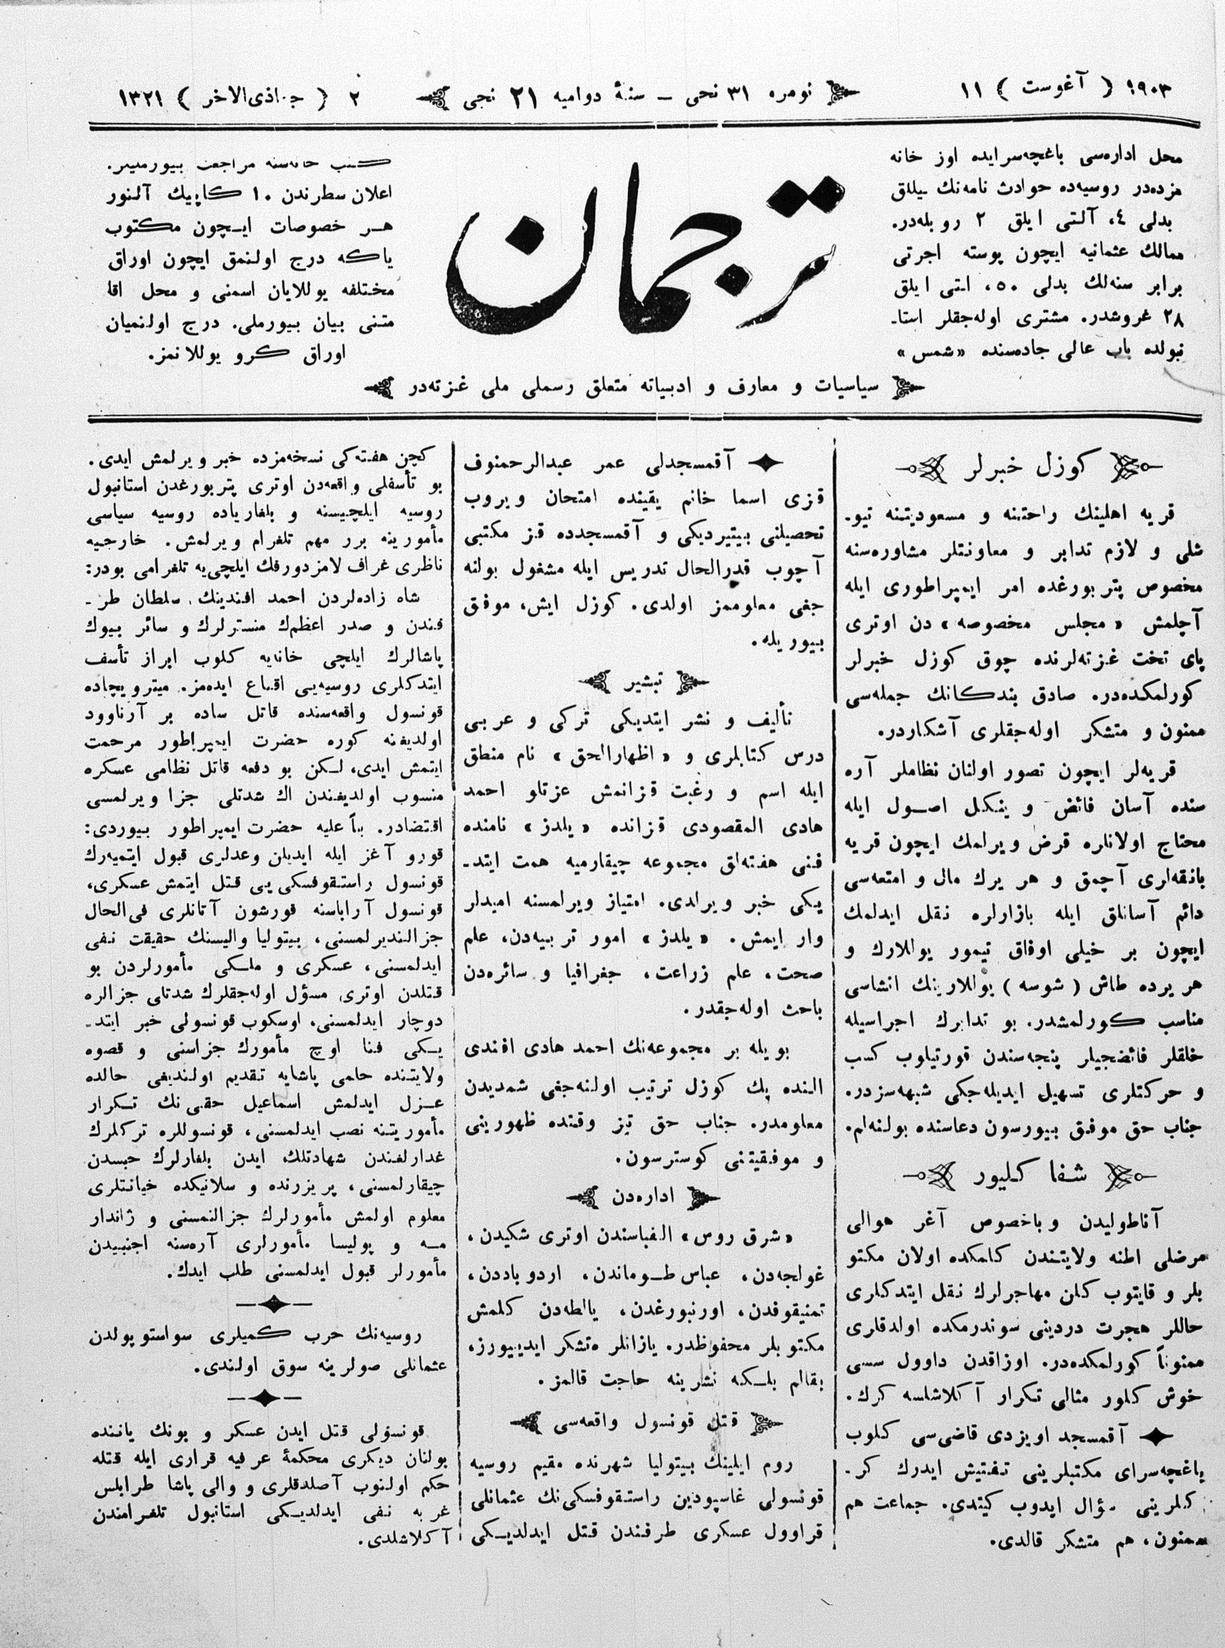 ١٩٠٣ ( آغوست ) ١١
نومره ٣١ نجی ـ سنهٔ دوامیه ٢١ نجی
٢ ( جماذی الاخر ) ١٣٢١
محل اداره‌سی باغچه‌سرایده اوز خانه
مزده‌در روسیه‌ده حوادث نامه‌نك ییللق
بدلی ٤، آلتی ایلق ٢ روبله‌در.
ممالك عثمانیه ایچون پوسته اجرتی
برابر سنه‌لك بدلی ٥٠، التی ایلق
٢٨ غروشدر. مشتری اوله‌جقلر استا-
نبولده باب عالی جاده‌سنده «شمس»
ترجمان
كتب خانه‌سنه مراجعت بیورملیدر.
اعلان سطرندن ١٠ كاپیك آلنور
هر خصوصات ایچون مكتوب
یاكه درج اولنمق ایچون اوراق
مختلفه یوللایان اسمنی و محل اقا
متنی بیان بیورملی. درج اولنمیان
اوراق كرو یوللانمز.
سیاسیات و معارف و ادبیاته متعلق رسملی ملی غزته‌در
كوزل خبرلر
قریه اهلینك راحتنه و مسعودیتنه تیو-
شلی و لازم تدابر و معاونتلر مشاوره‌سنه
مخصوص پتربورغده امر ایمپراطوری ایله
آچلمش «مجلس مخصوصه» دن اوتری
پای تخت غزته‌لرنده چوق كوزل خبرلر
كورلمكده‌در. صادق بندكانك جمله‌سی
ممنون و متشكر اوله‌جقلری آشكاردر.
قریه‌لر ایچون تصور اولنان نظاملر آره
سنده آسان فائض و ینكل اصول ایله
محتاج اولانلره قرض ویرلمك ایچون قریه
بانقه‌لری آچمق و هر یرك مال و امتعه‌سی
دائم آسانلق ایله بازارلره نقل ایدلمك
ایچون بر خیلی اوفاق تیمور یوللارك و
هر یرده طاش (شوسه) یوللارینك انشاسی
مناسب كورلمشدر. بو تدابرك اجراسیله
خلقلر فائضجیلر پنجه‌سندن قورتیلوب كسب
و حركتلری تسهیل ایدیله‌جكی شبهه‌سزدر.
جناب حق موفق بیورسون دعاسنده بولنه‌لم.
شفا كلیور
آناطولیدن وباخصوص آغر هوالی
مرضلی اطنه ولایتندن كلمكده اولان مكتو
بلر و قایتوب كلن مهاجرلرك نقل ایتدكلری
حاللر هجرت دردینی سوندرمكده اولدقلری
ممنوناً كورلمكده‌در. اوزاقدن داوول سسی
خوش كلور مثالی تكرار آكلاشلسه كرك.
آقمسجد اویزدی قاضی‌سی كلوب
باغچه‌سرای مكتبلرینی تفتیش ایدرك كر-
كلرینی سؤال ایدوب كیتدی. جماعت هم
ممنون، هم متشكر قالدی.
آقمسجدلی عمر عبدالرحمنوف
قزی اسما خانم یقینده امتحان ویروب
تحصیلنی بیتیردیكی و آقمسجدده قز مكتبی
آچوب قدرالحال تدریس ایله مشغول بولنه
جغی معلوممز اولدی. كوزل ایش، موفق
بیوریله.
تبشیر
تألیف و نشر ایتدیكی تركی و عربی
درس كتابلری و «اظهارالحق» نام منطق
ایله اسم و رغبت قزانمش عزتلو احمد
هادی المقصودی قزانده «یلدز» نامنده
فنی هفته‌لق مجموعه چیقارمیه همت ایتد-
یكی خبر ویرلدی. امتیاز ویرلمسنه امیدلر
وار ایمش. «یلدز» امور تربیه‌دن، علم
صحت، علم زراعت، جغرافیا و سائره‌دن
باحث اوله‌جقدر.
بویله بر مجموعه‌نك احمد هادی افندی
النده پك كوزل ترتیب اولنه‌جغی شمدیدن
معلومدر. جناب حق تیز وقتنده ظهورینی
و موفقیتنی كوسترسون.
اداره‌دن
«شرق روس» الفباسندن اوتری شكیدن،
غولجه‌دن، عباس طوماندن، اردوباددن،
تمنیقوفدن، اورنبورغدن، یالطه‌دن كلمش
مكتوبلر محفوظدر. یازانلره متشكر ایدییورز،
بقالم بلكه نشرینه حاجت قالمز.
قتل قونسول واقعه‌سی
روم ایلینك بیتولیا شهرنده مقیم روسیه
قونسولی غاسپودین راستقوفسكی‌نك عثمانلی
قراوول عسكری طرفندن قتل ایدلدیكی
كچن هفته‌كی نسخه‌مزده خبر ویرلمش ایدی.
بو تأسفلی واقعه‌دن اوتری پتربورغدن استانبول
روسیه ایلچیسنه و بلغاریاده روسیه سیاسی
مأمورینه برر مهم تلغرام ویرلمش. خارجیه
ناظری غراف لامزدورفك ایلچی‌یه تلغرامی بودر:
شاه زاده‌لردن احمد افندینك، سلطان طر-
فندن و صدر اعظمك منسترلرك و سائر بیوك
پاشالرك ایلچی خانه‌یه كلوب ابراز تأسف
ایتدكلری روسیه‌یی اقناع ایده‌مز. میترویچاده
قونسول واقعه‌سنده قاتل ساده بر آرناوود
اولدیغنه كوره حضرت ایمپراطور مرحمت
ایتمش ایدی، لكن بو دفعه قاتل نظامی عسكره
منسوب اولدیغندن اك شدتلی جزا ویرلمسی
اقتضادر. بناً علیه حضرت ایمپراطور بیوردی:
قورو آغز ایله ایدیلن وعدلری قبول ایتمیه‌رك
قونسول راستقوفسكی یی قتل ایتمش عسكری،
قونسول آراباسنه قورشون آتانلری فی‌الحال
جزالندیرلمسنی، بیتولیا والیسنك حقیقت نفی
ایدلمسنی، عسكری و ملكی مأمورلردن بو
قتلدن اوتری مسؤل اوله‌جقلرك شدتلی جزالره
دوچار ایدلمسنی، اوسكوب قونسولی خبر ایتد-
یكی فنا اوچ مأمورك جزاسنی و قصوه
ولایتنده حلمی پاشایه تقدیم اولندیغی حالده
عزل ایدلمش اسماعیل حقی‌نك تكرار
مأموریتنه نصب ایدلمسنی، قونسوللره تركلرك
غدارلغندن شهادتلك، ایدن بلغارلرك حبسدن
چیقارلمسنی، پریزرنده و سلانیكده خیانتلری
معلوم اولمش مأمورلرك جزالنمسنی و ژاندار
مه و پولیسا مأمورلری آره‌سنه اجنبیدن
مأمورلر قبول ایدلمسنی طلب ایدك.
روسیه‌نك حرب كمیلری سواستوپولدن
عثمانلی صولرینه سوق اولندی.
قونسولی قتل ایدن عسكر و بونك یاننده
بولنان دیكری محكمهٔ عرفیه قراری ایله قتله
حكم اولنوب آصلدقلری و والی پاشا طرابلس
غربه نفی ایدلدیكی استانبول تلغرامندن
آكلاشلدی.